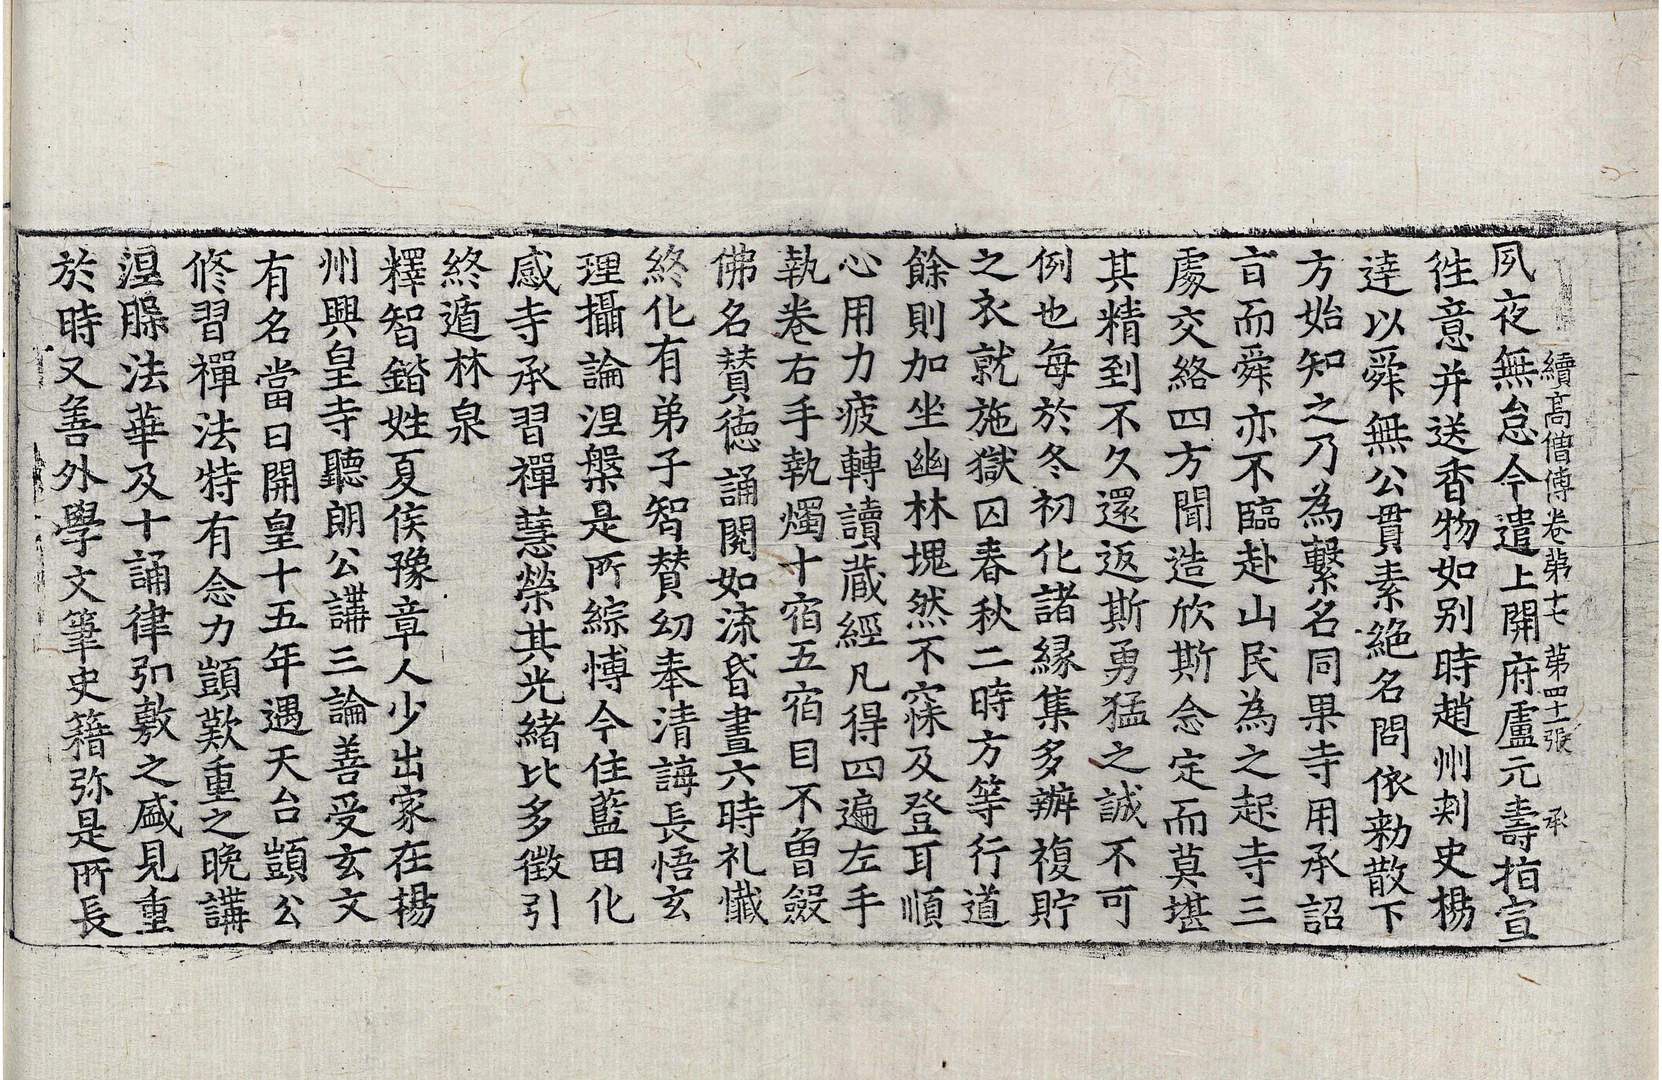 續高僧傳卷苐十七 苐四十一張 承
夙夜無怠今遣上開府盧元壽指宣
徃意并送香物如别時趙州刾史楊
逹以舜無公貫素絶名問依勑散下
方始知之乃為繫名同果寺用承詔
㫖而舜亦不臨赴山民為之起寺三
處交絡四方聞造欣斯念定而莫堪
其精到不久還返斯勇猛之誠不可
例也每於冬初化諸緣集多辦複貯
之衣就施獄囚春秋二時方等行道
餘則加坐幽林塊然不寐及登耳順
心用力疲轉讀藏經凡得四遍左手
執卷右手執燭十宿五宿目不曾斂
佛名賛德誦閱如流昏晝六時礼懺
終化有弟子智賛幻奉清誨長悟玄
理攝論涅槃是所綜愽今住藍田化
感寺承習禪慧榮其光緒比多徵引
終遁林泉
釋智鍇姓夏侯豫章人少出家在楊
州興皇寺聽朗公講三論善受玄文
有名當日開皇十五年遇天台顗公
修習禪法特有念力顗歎重之晚講
涅槃法華及十誦律弘敷之盛見重
於時又善外學文筆史籍弥是所長